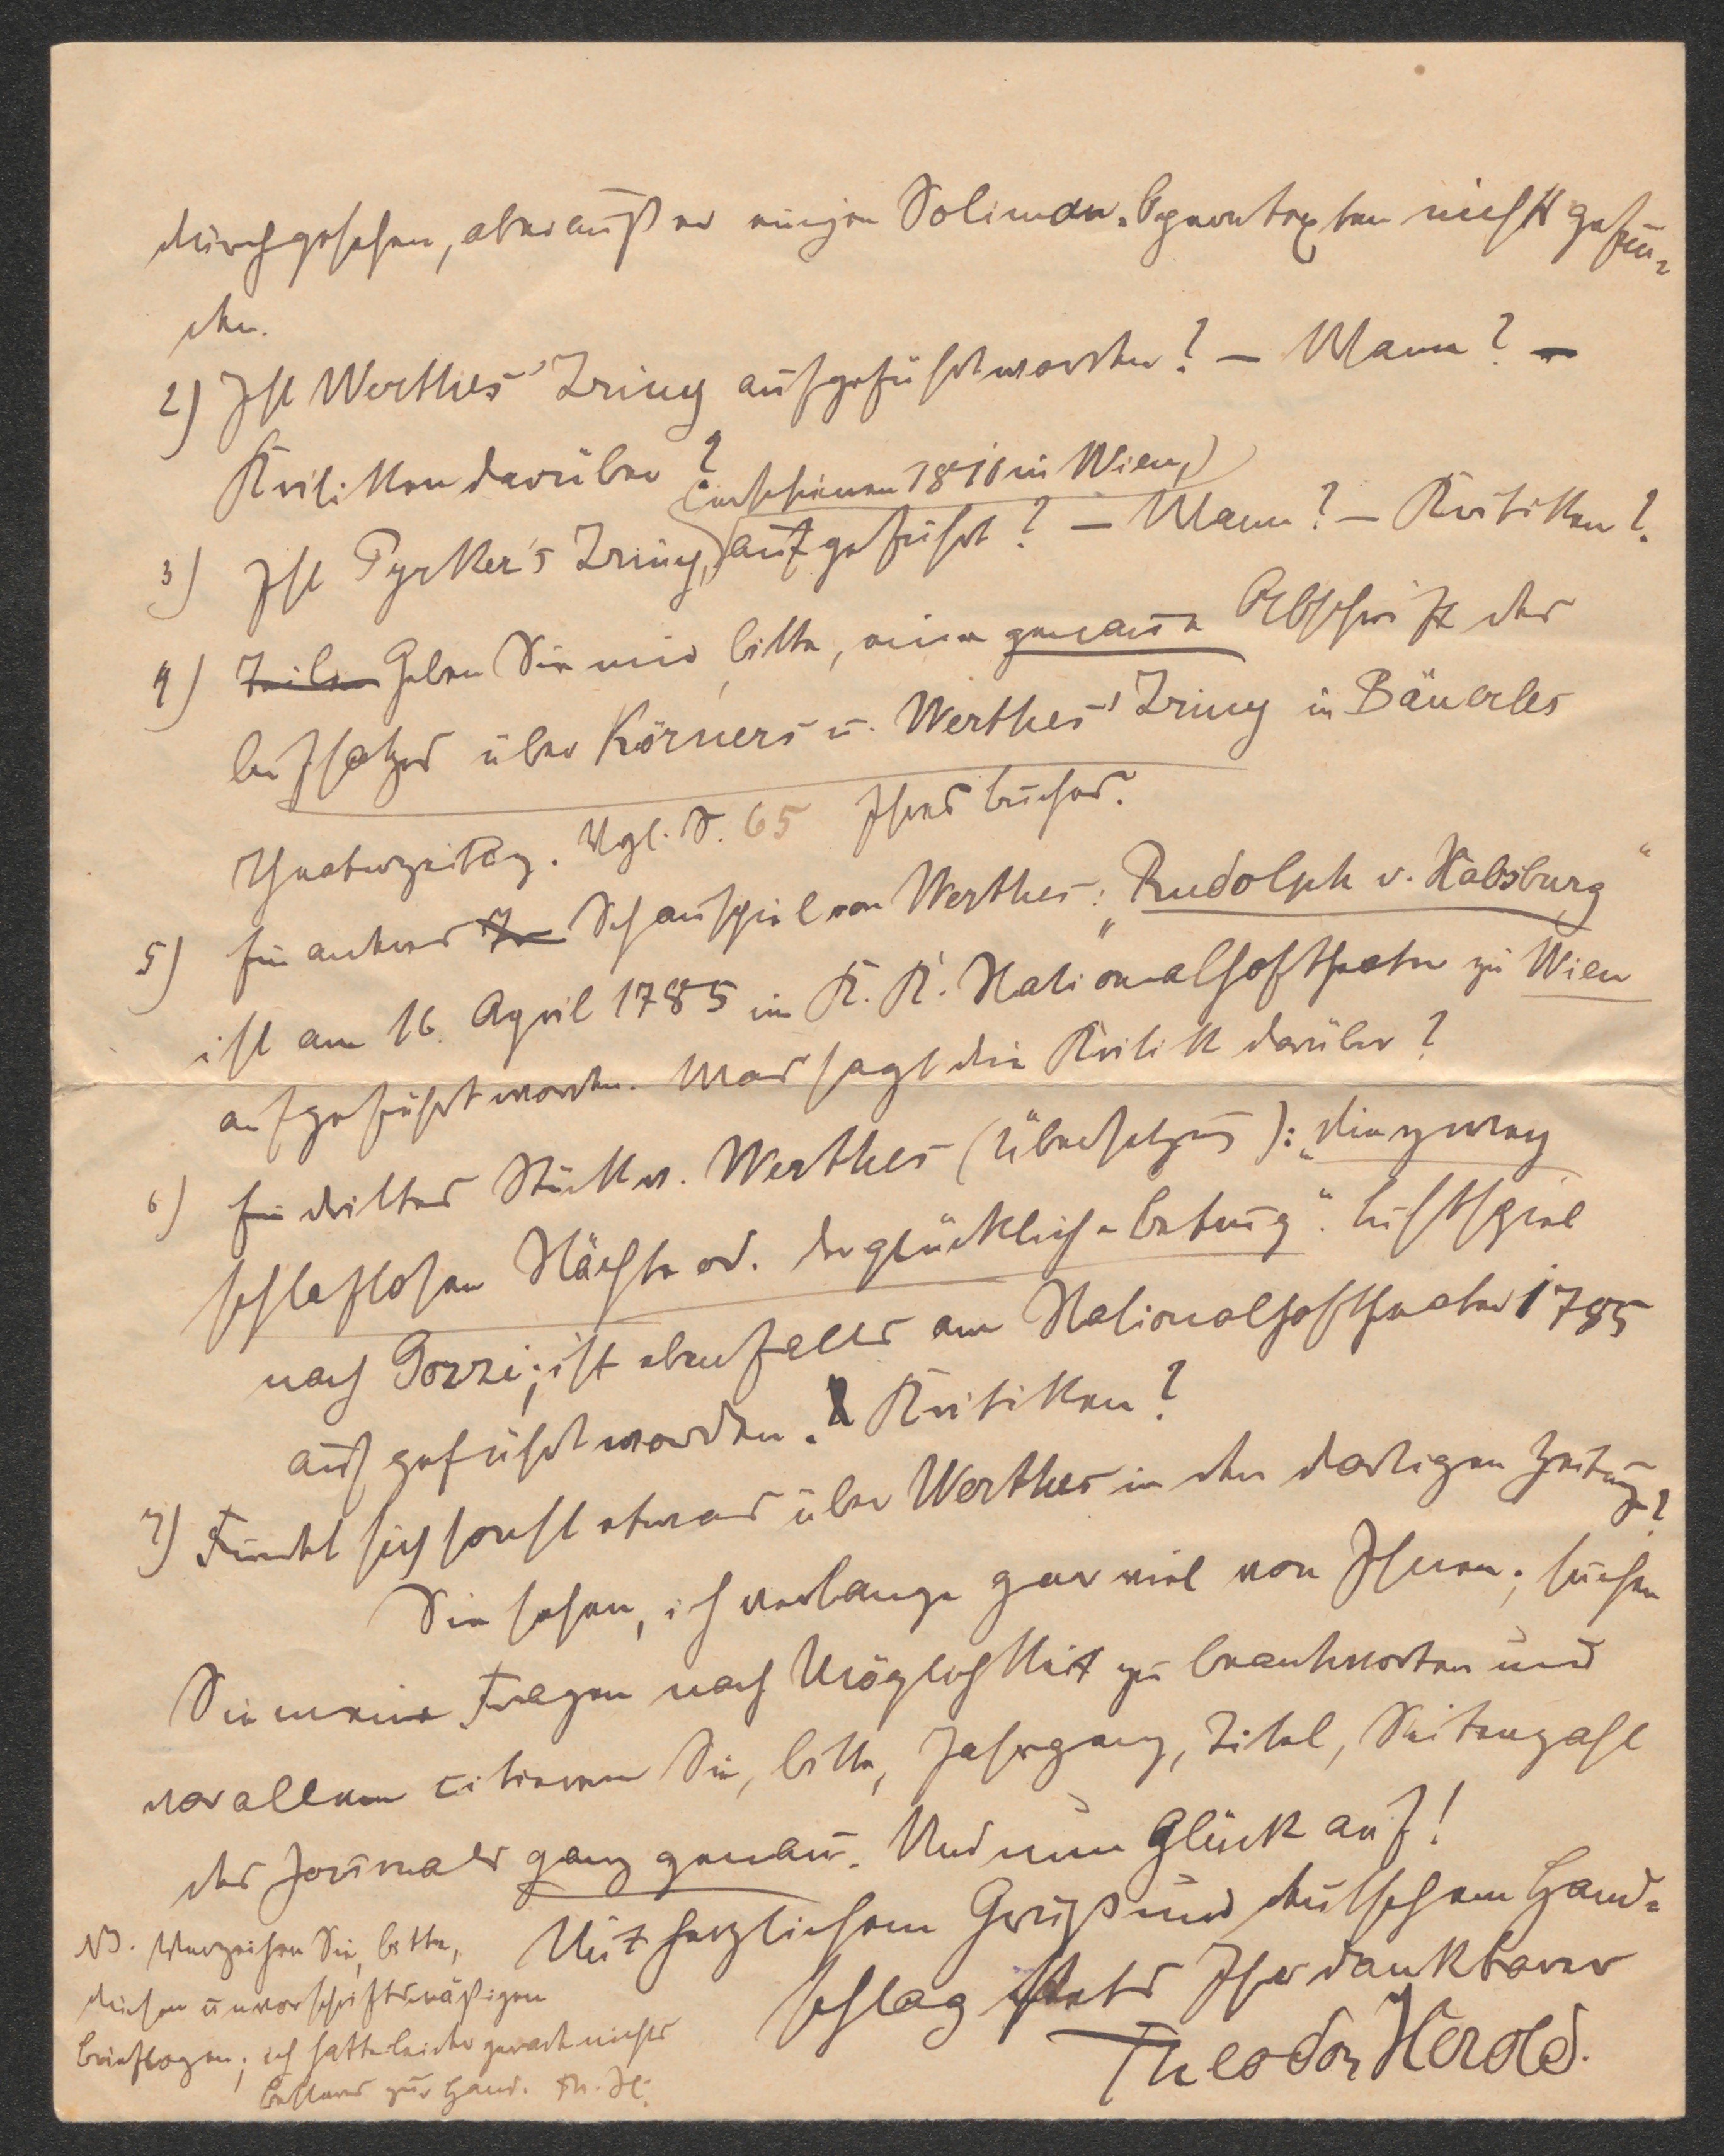 durchgesehen, aber außer einigen Soliman-Operntexten nichts gefun-
den.
2) Ist Werthes' Zriny aufgeführt worden? – Wann? –
Kritiken darüber?
(erschienen 1810 in Wien,)
3) Ist Pyrker's Zriny, aufgeführt? – Wann? – Kritiken?
4) Geben Sie mir, bitte, eine genaue Abschrift des
Aufsatzes über Körners u. Werthes' Zriny in Bäuerles
Theaterzeitg. Vgl. S. 65 Ihres Buches.
5) Ein anderes Schauspiel von Werthes: „Rudolph v. Habsburg“
ist am 16. April 1785 im K. K. Nationalhoftheater zu Wien
aufgeführt worden. Was sagt die Kritik darüber?
6) Ein drittes Stück v. Werthes (Übersetzung): „die zwey
schlaflosen Nächte od. der glückliche Betrug“. Lustspiel
nach Gozzi; ist ebenfalls am Nationalhoftheater 1785
aufgeführt worden. Kritiken?
7) Findet sich sonst etwas über Werthes in den dortigen Zeitung.?
Sie sehen, ich verlange gar viel von Ihnen; suchen
Sie meine Fragen nach Möglichkeit zu beantworten und
vor allem citieren Sie, bitte, Jahrgang, Titel, Seitenzahl
des Journales ganz genau. Und nun Glück auf!
Mit herzlichem Gruß und deutschem Hand-
schlag stets Ihr dankbarer
Theodor Herold.
NB. Verzeihen Sie, bitte,
diesen unvorschriftsmäßigen
Briefbogen; ich hatte leider gerade nichts
besseres zur Hand. Th. H.